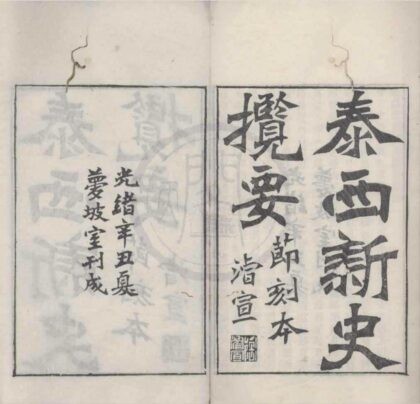 泰西新史
攬要
節刻本
濬宣
光緒辛丑夏
夢坡室刊成